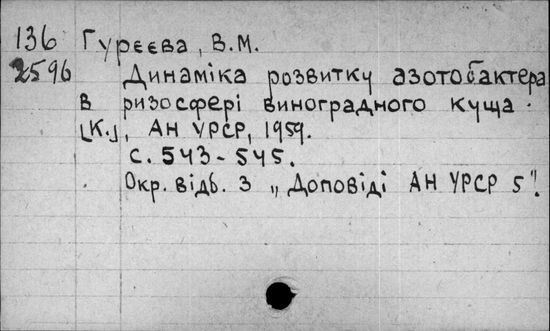 136 Гурєєва, В.М.
2596 Динаміка розвитку азотобактера
в ризосфері виноградного куща.
[К.], АН УРСР, 1959.
с. 543-545.
Окр. відб. з „Доповіді АН УРСР 5".